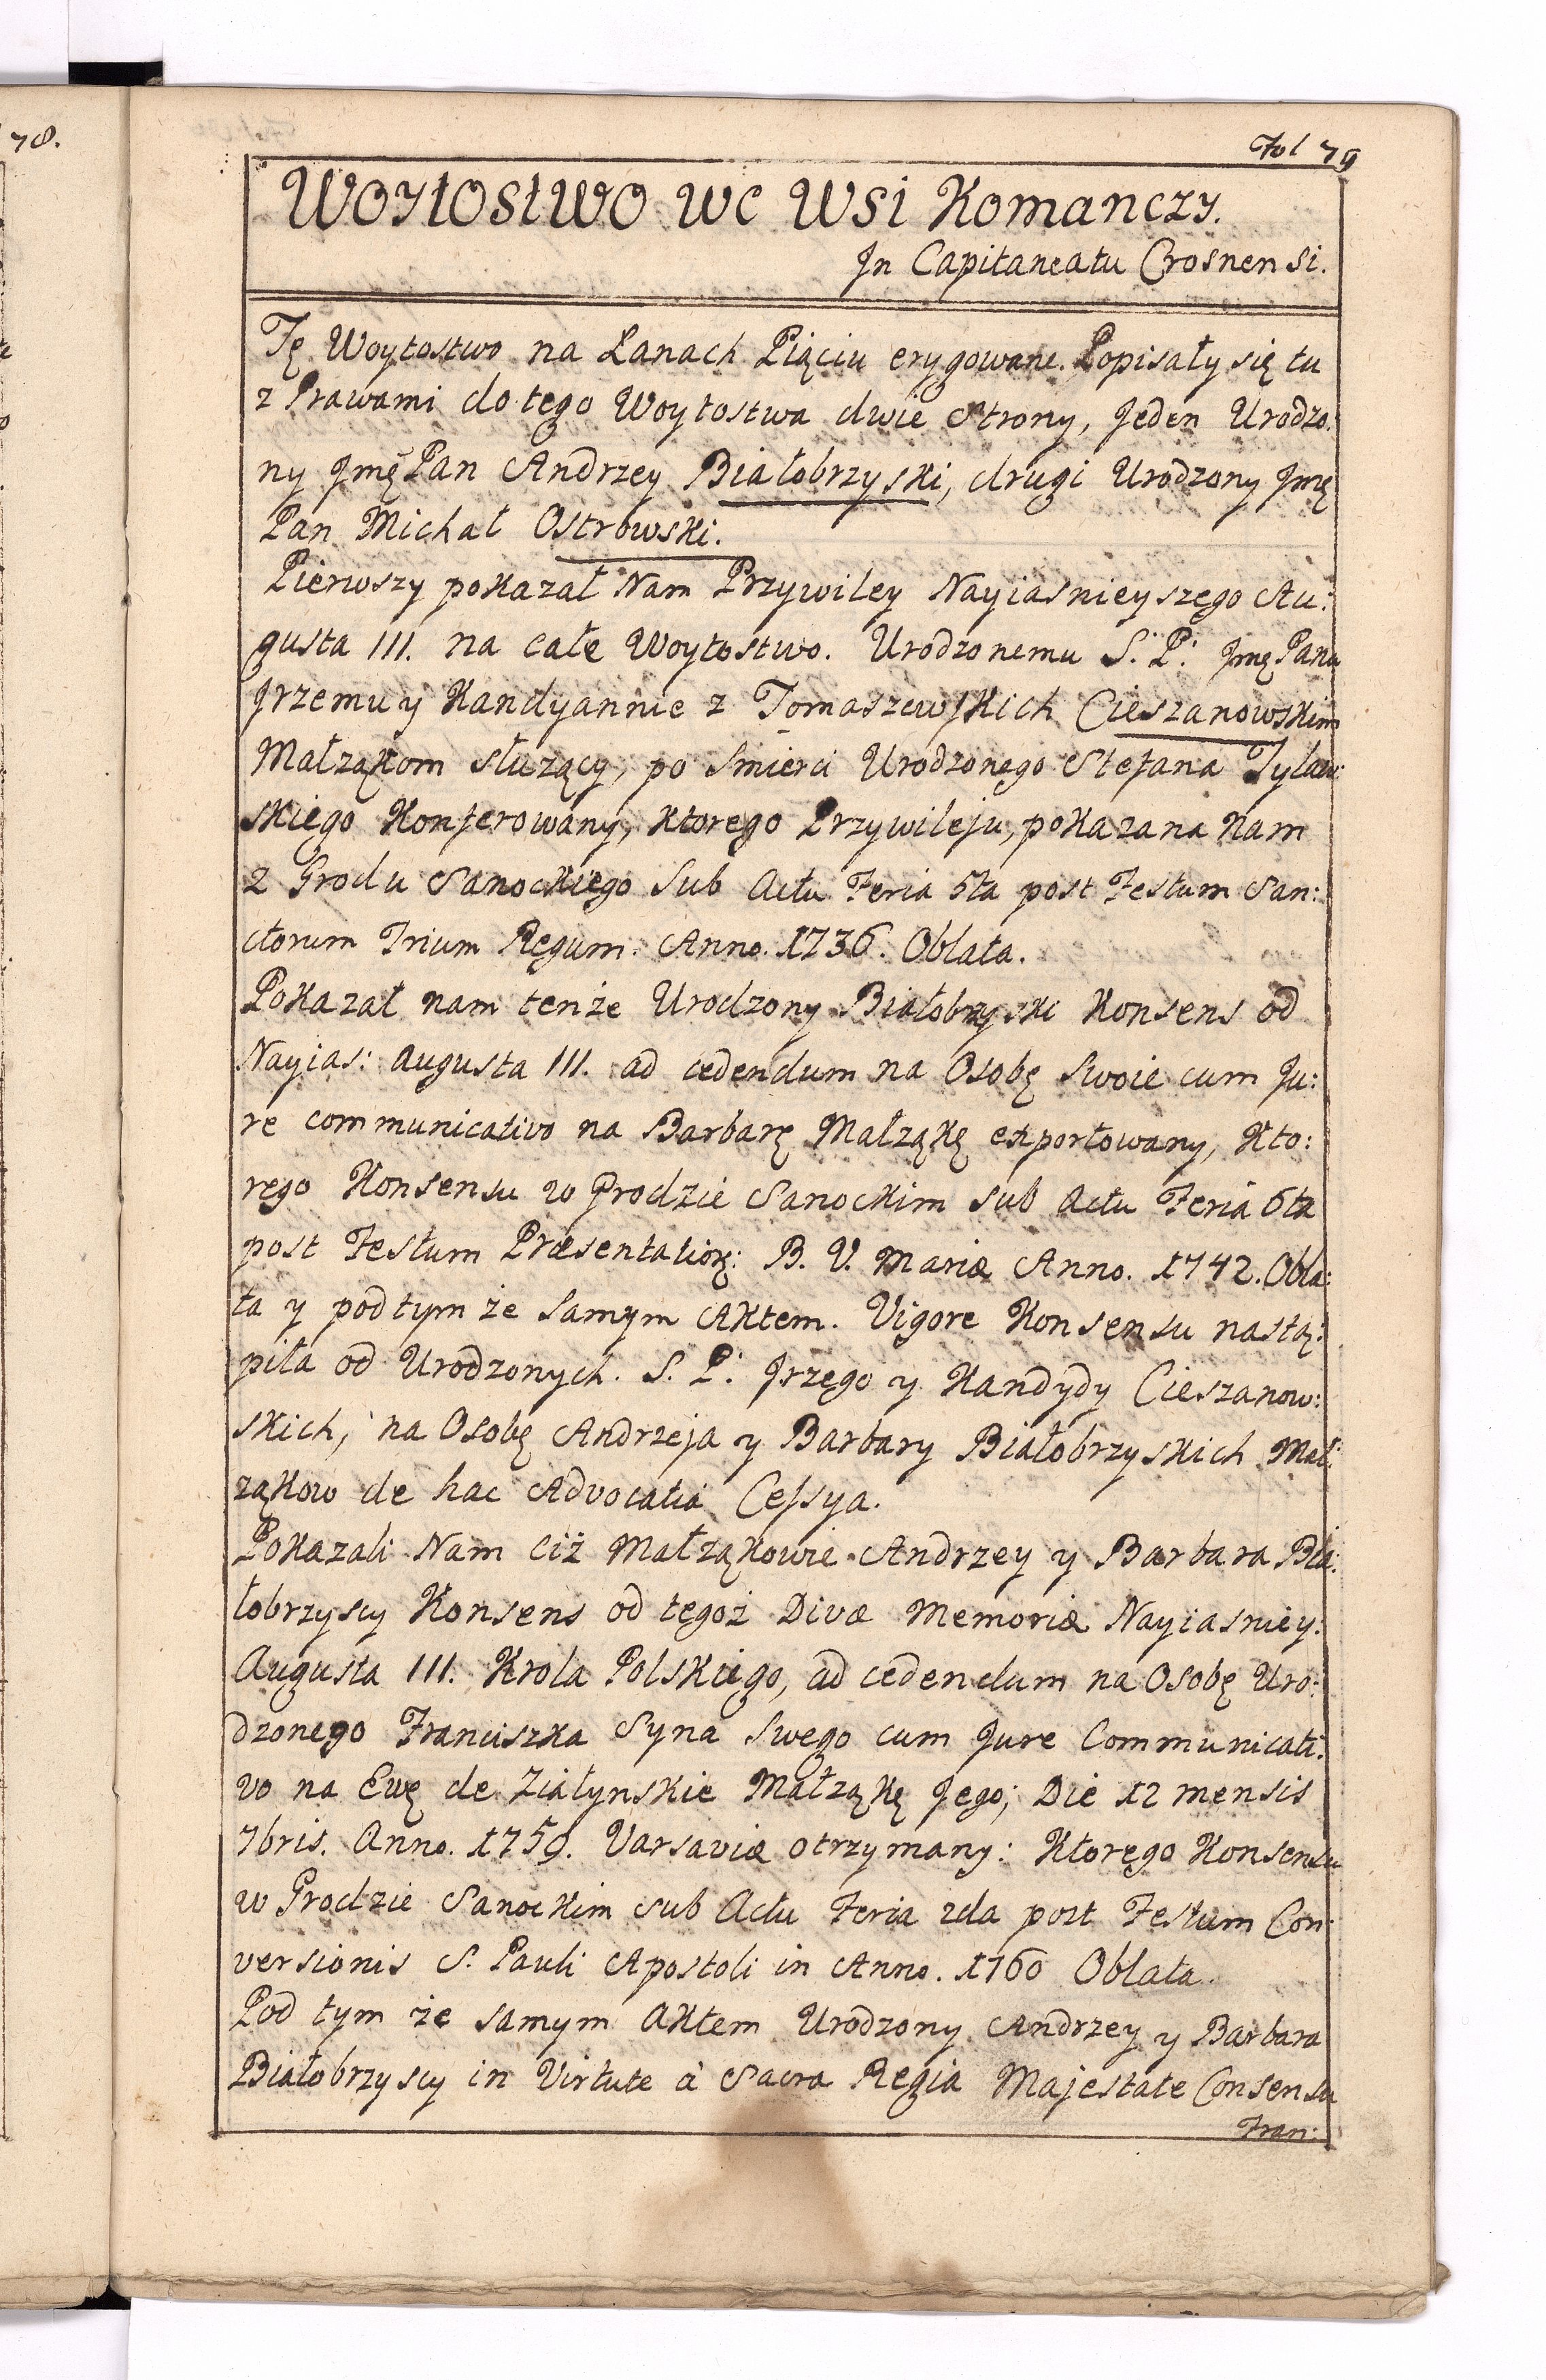 78.
Fol 79
Woytostwo we Wsi Komanczy.
In Capitaneatu Crosnensi.
Tę Woytostwo na Łanach Piąciu erygowane. Popisały się tu
z Prawami do tego Woytostwa dwie Strony, Jeden Urodzo:
ny Jmę Pan Andrzey Białobrzyski, drugi Urodzony Jmę
Pan Michał Ostrowski.
Pierwszy pokazał Nam Przywiley Nayiasnieyszego Au:
gusta III. na całe Woytostwo. Urodzonemu S. P. Jmę Panu
Jrzemu y Kandyannie z Tomaszewskich Cieszanowskim
Małżąkom służący, po Smierci Urodzonego Stefana Tylaw:
skiego Konferowany, ktorego Przywileju, pokazana Nam
z Grodu Sanockiego Sub Actu Feria 5ta post Festum San:
ctorum Trium Regum. Anno. 1736. Oblata.
Pokazał nam tenże Urodzony Białobrzyski Konsens od
Nayias: Augusta III. ad cedendum na Osobę Swoie cum Ju:
re communicativo na Barbarę Małżąkę exportowany, Kto:
rego Konsensu w Grodzie Sanockim sub Actu Feria 6ta
post Festum Præsentationę: B. V. Mariæ Anno. 1742. Obla:
ta y pod tym że samym Aktem. Vigore Konsensu nastą:
piła od Urodzonych. S. P. Jrzego y Kandydy Cieszanow:
skich, na Osobę Andrzeja y Barbary Białobrzyskich Mał:
ząkow de hac Advocatia Cessya.
Pokazali Nam ciż Małżąkowie Andrzey y Barbara Bia:
łobrzyscy Konsens od tegoż Divæ Memoriæ Nayiasniey:
Augusta III. Krola Polskiego, ad cedendum na Osobę Uro:
dzonego Franciszka Syna Swego cum Jure Communicati:
vo na Ewę de Ziałynskie Małżąkę Jego; Die 12 mensis
7bris. Anno. 1759. Varsaviæ otrzymany: Ktorego Konsensu
w Grodzie Sanockim sub Actu Feria 2da post Festum Con:
versionis S. Pauli Apostoli in Anno. 1760 Oblata.
Pod tym że samym Aktem Urodzony Andrzey y Barbara
Białobrzyscy in Virtute à Sacra Regia Majestate Consensu
Fran: